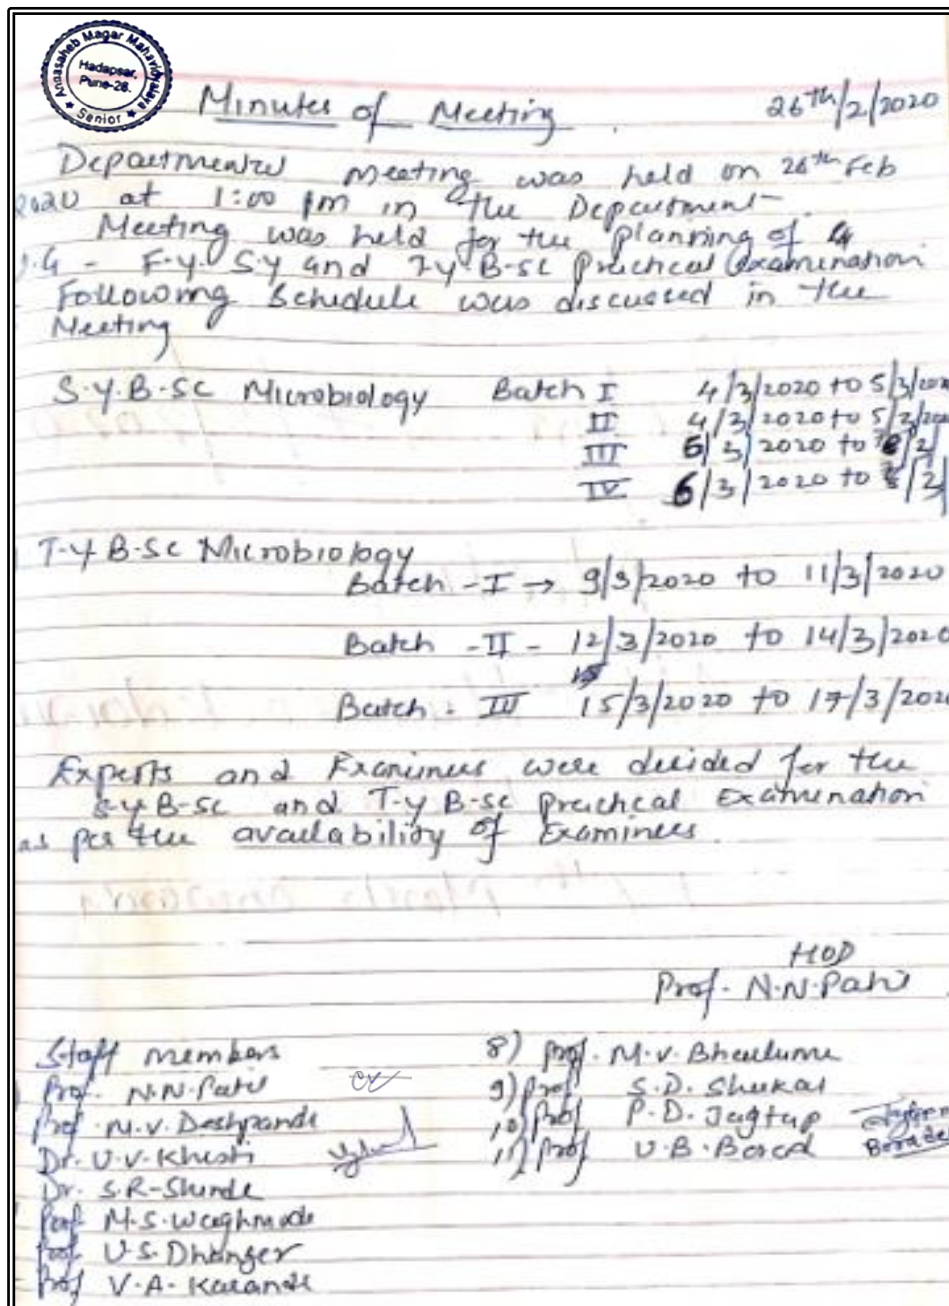 Annasaheb Magar Mahavidyalaya
Hadapsar,
Pune-28.
Senior
Minutes of Meeting. 26th/2/2020
Departmental meeting was held on 26th Feb
2020 at 1:00 pm in the Department.
Meeting was held for the planning of
U.G - F.Y. S.Y and T.Y. B-sc practical Examination
Following Schedule was discussed in the
Meeting
S.Y.B-sc Microbiology Batch I 4/3/2020 to 5/3/2020
II 4/3/2020 to 5/3/2020
III 6/3/2020 to
IV 6/3/2020 to
T-Y B-sc Microbiology
Batch - I → 9/3/2020 to 11/3/2020
Batch - II - 12/3/2020 to 14/3/2020
Batch - III 15/3/2020 to 17/3/2020
Experts and Examiners were decided for the
S-y B-sc and T-y B-sc practical Examination
as per the availability of Examiners.
HOD
Prof. N.N.Patil
Staff members
Prof. N.N.Patil
Prof. M.V. Deshpande
Dr. U.V. Khisti
Dr. S.R-Shinde
Prof. M.S. Waghmode
Prof. U.S. Dhanger
Prof V.A. Karande
8) Prof. M.V. Bhelume
9) Prof S.D. Shukal
10) Prof P.D. Jagtap
11) Prof U.B. Borad Borade